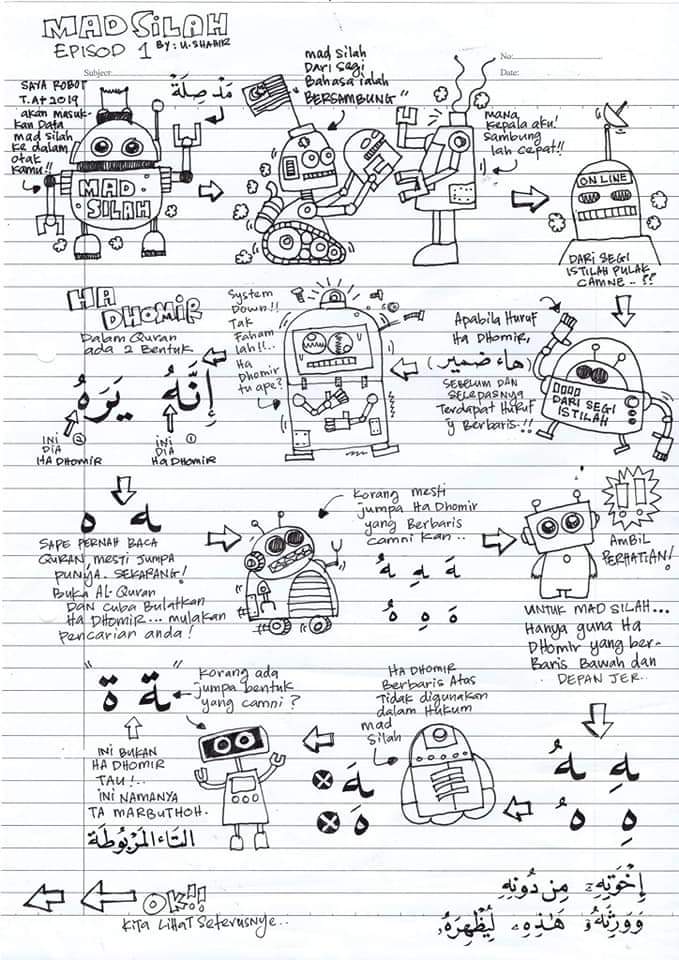 MAD SILAH
EPISOD 1 BY: U.SHAHIR
No:
Subject
Date:
SAYA ROBOT
T.A+ 2019
akan masuk-
kan Data
mad silah
ke dalam
otak
kamu!!
مَدّ صِلَة
MAD
SILAH
mad silah
Dari segi
Bahasa ialah
"BERSAMBUNG"
mana
kepala aku!
Sambung
lah cepat!!
ONLINE
DARI SEGI
ISTILAH PULAK
CAMNE.. ??
Apabila Huruf
Ha DHOMIR,
(هاء ضمير)
SEBELUM DAN
SELEPASNYA
TERDAPAT HURUF
y BERBARIS.!!
DARI SEGI
ISTILAH
System
Down!!
Tak
Faham
lah!!..
Ha
Dhomir
tu ape?
HA
DHOMIR
Dalam Quran
ada 2 Bentuk
إِنَّهُ يَرَهُ
INI ①
DIA
HA DHOMIR
INI ②
DIA
HA DHOMIR
ـه ه
SAPE PERNAH BACA
QURAN, MESTI JUMPA
PUNYA. SEKARANG!
Buka AL-Quran
DAN CUBA BULATKAN
HA DHOMIR... mulakan
Pencarian anda!
Korang mesti
jumpa Ha Dhomir
yang Berbaris
camni kan..
ـهَ ـهِ ـهُ
هَ هِ هُ
!!
AMBIL
PERHATIAN!
UNTUK MAD SILAH...
Hanya guna Ha
DHOMIR yang ber-
Baris Bawah dan
DEPAN JER..
ـهِ ـهُ
هِ هُ
HA DHOMIR
Berbaris Atas
Tidak digunakan
dalam Hukum
mad
Silah
ـهَ
هَ
Korang ada
jumpa bentuk
yang camni?
"ـة ة"
INI BUKAN
HA DHOMIR
TAU!..
INI NAMANYA
TA MARBUTHOH.
التَاء المَرْبُوطَة
إِخْوَتِهِۦ مِن دُونِهِ
وَوَرِثَهُۥ هَٰذِهِۦ لِيُظْهِرَهُۥ
OK!!
KITA LIHAT Seterusnye..